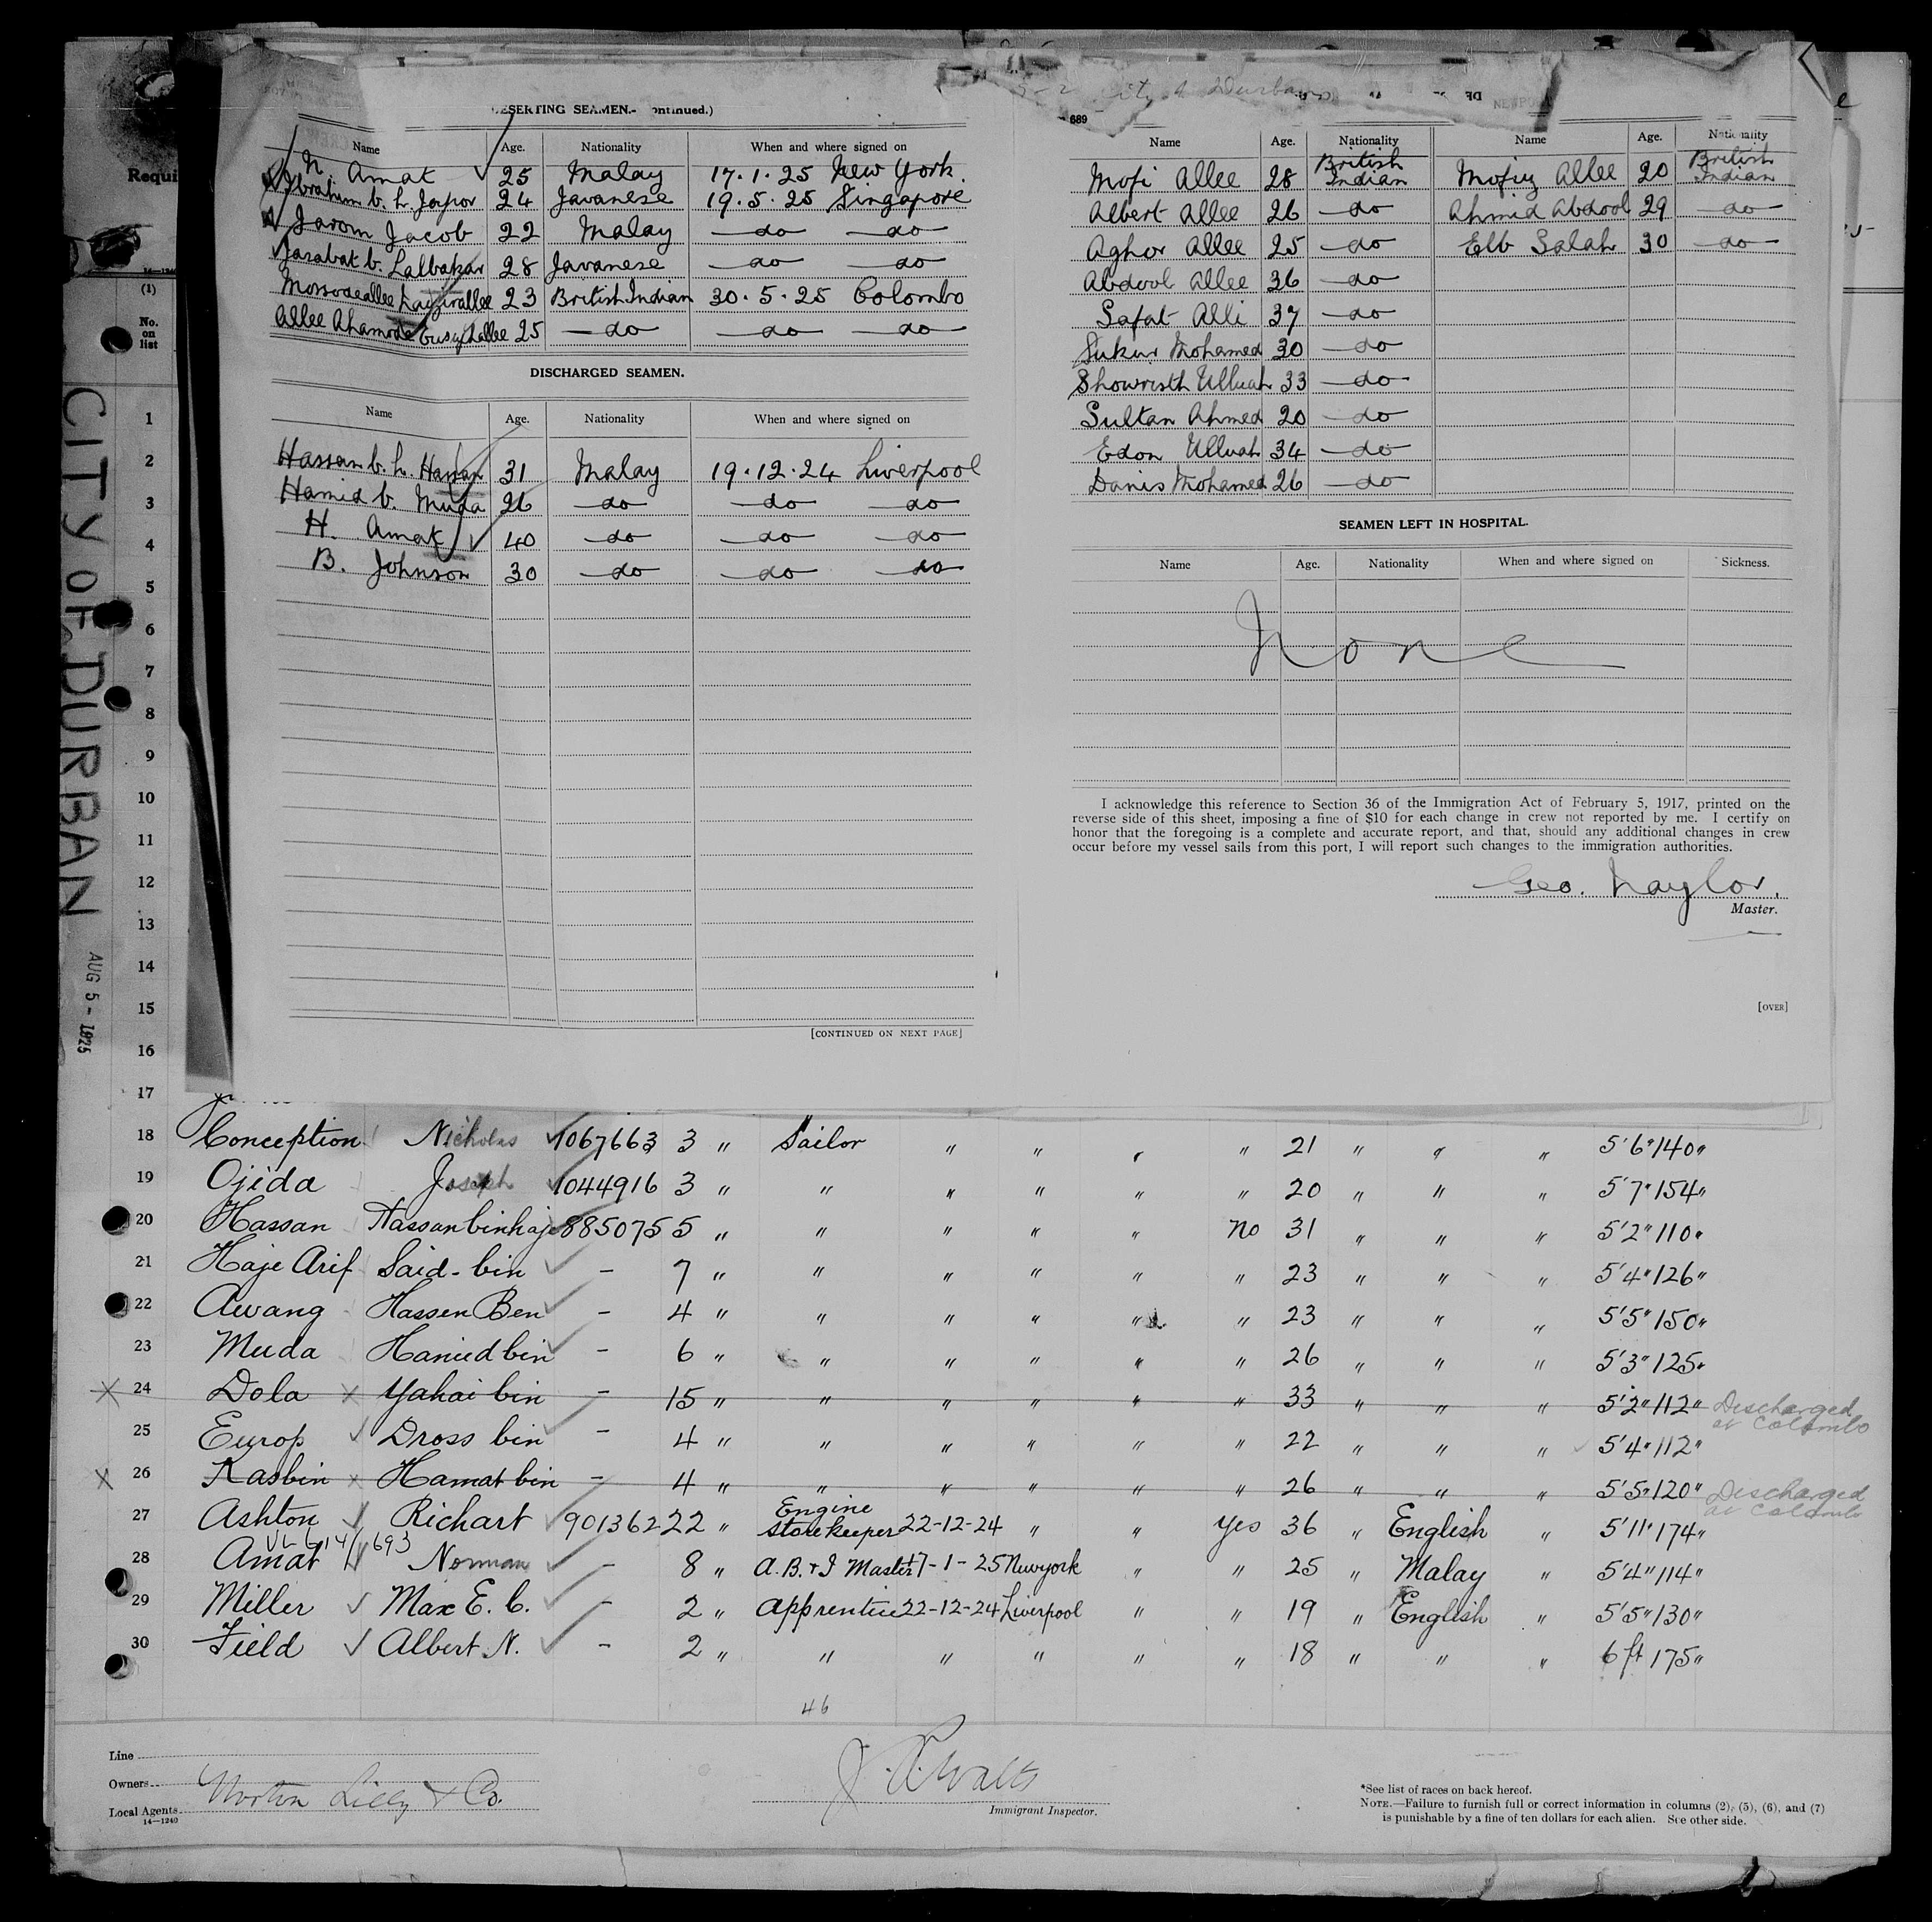 City of Durban
DESERTING SEAMEN.—(Continued.)
Name Age. Nationality When and where signed on
N. Amat 25 Malay 17.1.25 New York.
Ibrahim b. h. Japor 24 Javanese 19.5.25 Singapore
Jarom Jacob 22 Malay do do
Jasabat b. Lalbakar 28 Javanese do do
Mossodeallee 23 British Indian 30.5.25 Colombo
Allee Ahamode 25 do do do
DISCHARGED SEAMEN.
Name Age. Nationality When and where signed on
Hassan b. h. Hassan 31 Malay 19.12.24 Liverpool
Hamid b. Muda 26 do do do
H. Amat 40 do do do
B. Johnson 30 do do do
[CONTINUED ON NEXT PAGE]
689
Name Age. Nationality Name Age. Nationality
Mofi Allee 28 British Indian Mofiz Allee 20 British Indian
Albert Allee 26 do Ahmid Abdool 29 do
Aghor Allee 25 do Elb Salah 30 do
Abdool Allee 36 do
Safat Alli 37 do
Sukur Mohamed 30 do
Showristh Ulluah 33 do
Sultan Ahmed 20 do
Edon Ulluah 34 do
Danis Mohamed 26 do
SEAMEN LEFT IN HOSPITAL.
Name Age. Nationality When and where signed on Sickness.
None
I acknowledge this reference to Section 36 of the Immigration Act of February 5, 1917, printed on the
reverse side of this sheet, imposing a fine of $10 for each change in crew not reported by me. I certify on
honor that the foregoing is a complete and accurate report, and that, should any additional changes in crew
occur before my vessel sails from this port, I will report such changes to the immigration authorities.
Geo. Naylor.
Master.
[OVER]
Requi
(1)
No.
on
list
CITY OF DURBAN
AUG 5 - 1925
1
2
3
4
5
6
7
8
9
10
11
12
13
14
15
16
17
18 Conception Nicholas 1067663 3 " Sailor " " " " 21 " " " 5'6" 140"
19 Ojida Joseph 1044916 3 " " " " " " 20 " " " 5'7" 154"
20 Hassan Hassan binhaje 885075 5 " " " " " No 31 " " " 5'2" 110"
21 Haje Arif Said-bin - 7 " " " " " " 23 " " " 5'4" 126"
22 Awang Hassen Ben - 4 " " " " " " 23 " " " 5'5" 150"
23 Muda Hamid bin - 6 " " " " " " 26 " " " 5'3" 125"
24 Dola Yahai bin - 15 " " " " " " 33 " " " 5'2" 112" Discharged at Colombo
25 Europ Dross bin - 4 " " " " " " 22 " " " 5'4" 112"
26 Kasbin Hamat bin - 4 " " " " " " 26 " " " 5'5" 120" Discharged at Colombo
27 Ashton Richart 901362 22 " Engine storekeeper 22-12-24 " " Yes 36 " English " 5'11" 174"
VL 614/693
28 Amat Norman - 8 " A.B. + 17-1-25 Newyork " " 25 " Malay " 5'4" 114"
29 Miller Max E. C. - 2 " Apprentice 22-12-24 Liverpool " " 19 " English " 5'5" 130"
30 Field Albert N. - 2 " " " " " " 18 " " " 6 ft 175"
46
Line
Owners
Local Agents Norton Lilly & Co.
14—1240
Immigrant Inspector.
*See list of races on back hereof.
NOTE.—Failure to furnish full or correct information in columns (2), (5), (6), and (7)
is punishable by a fine of ten dollars for each alien. See other side.